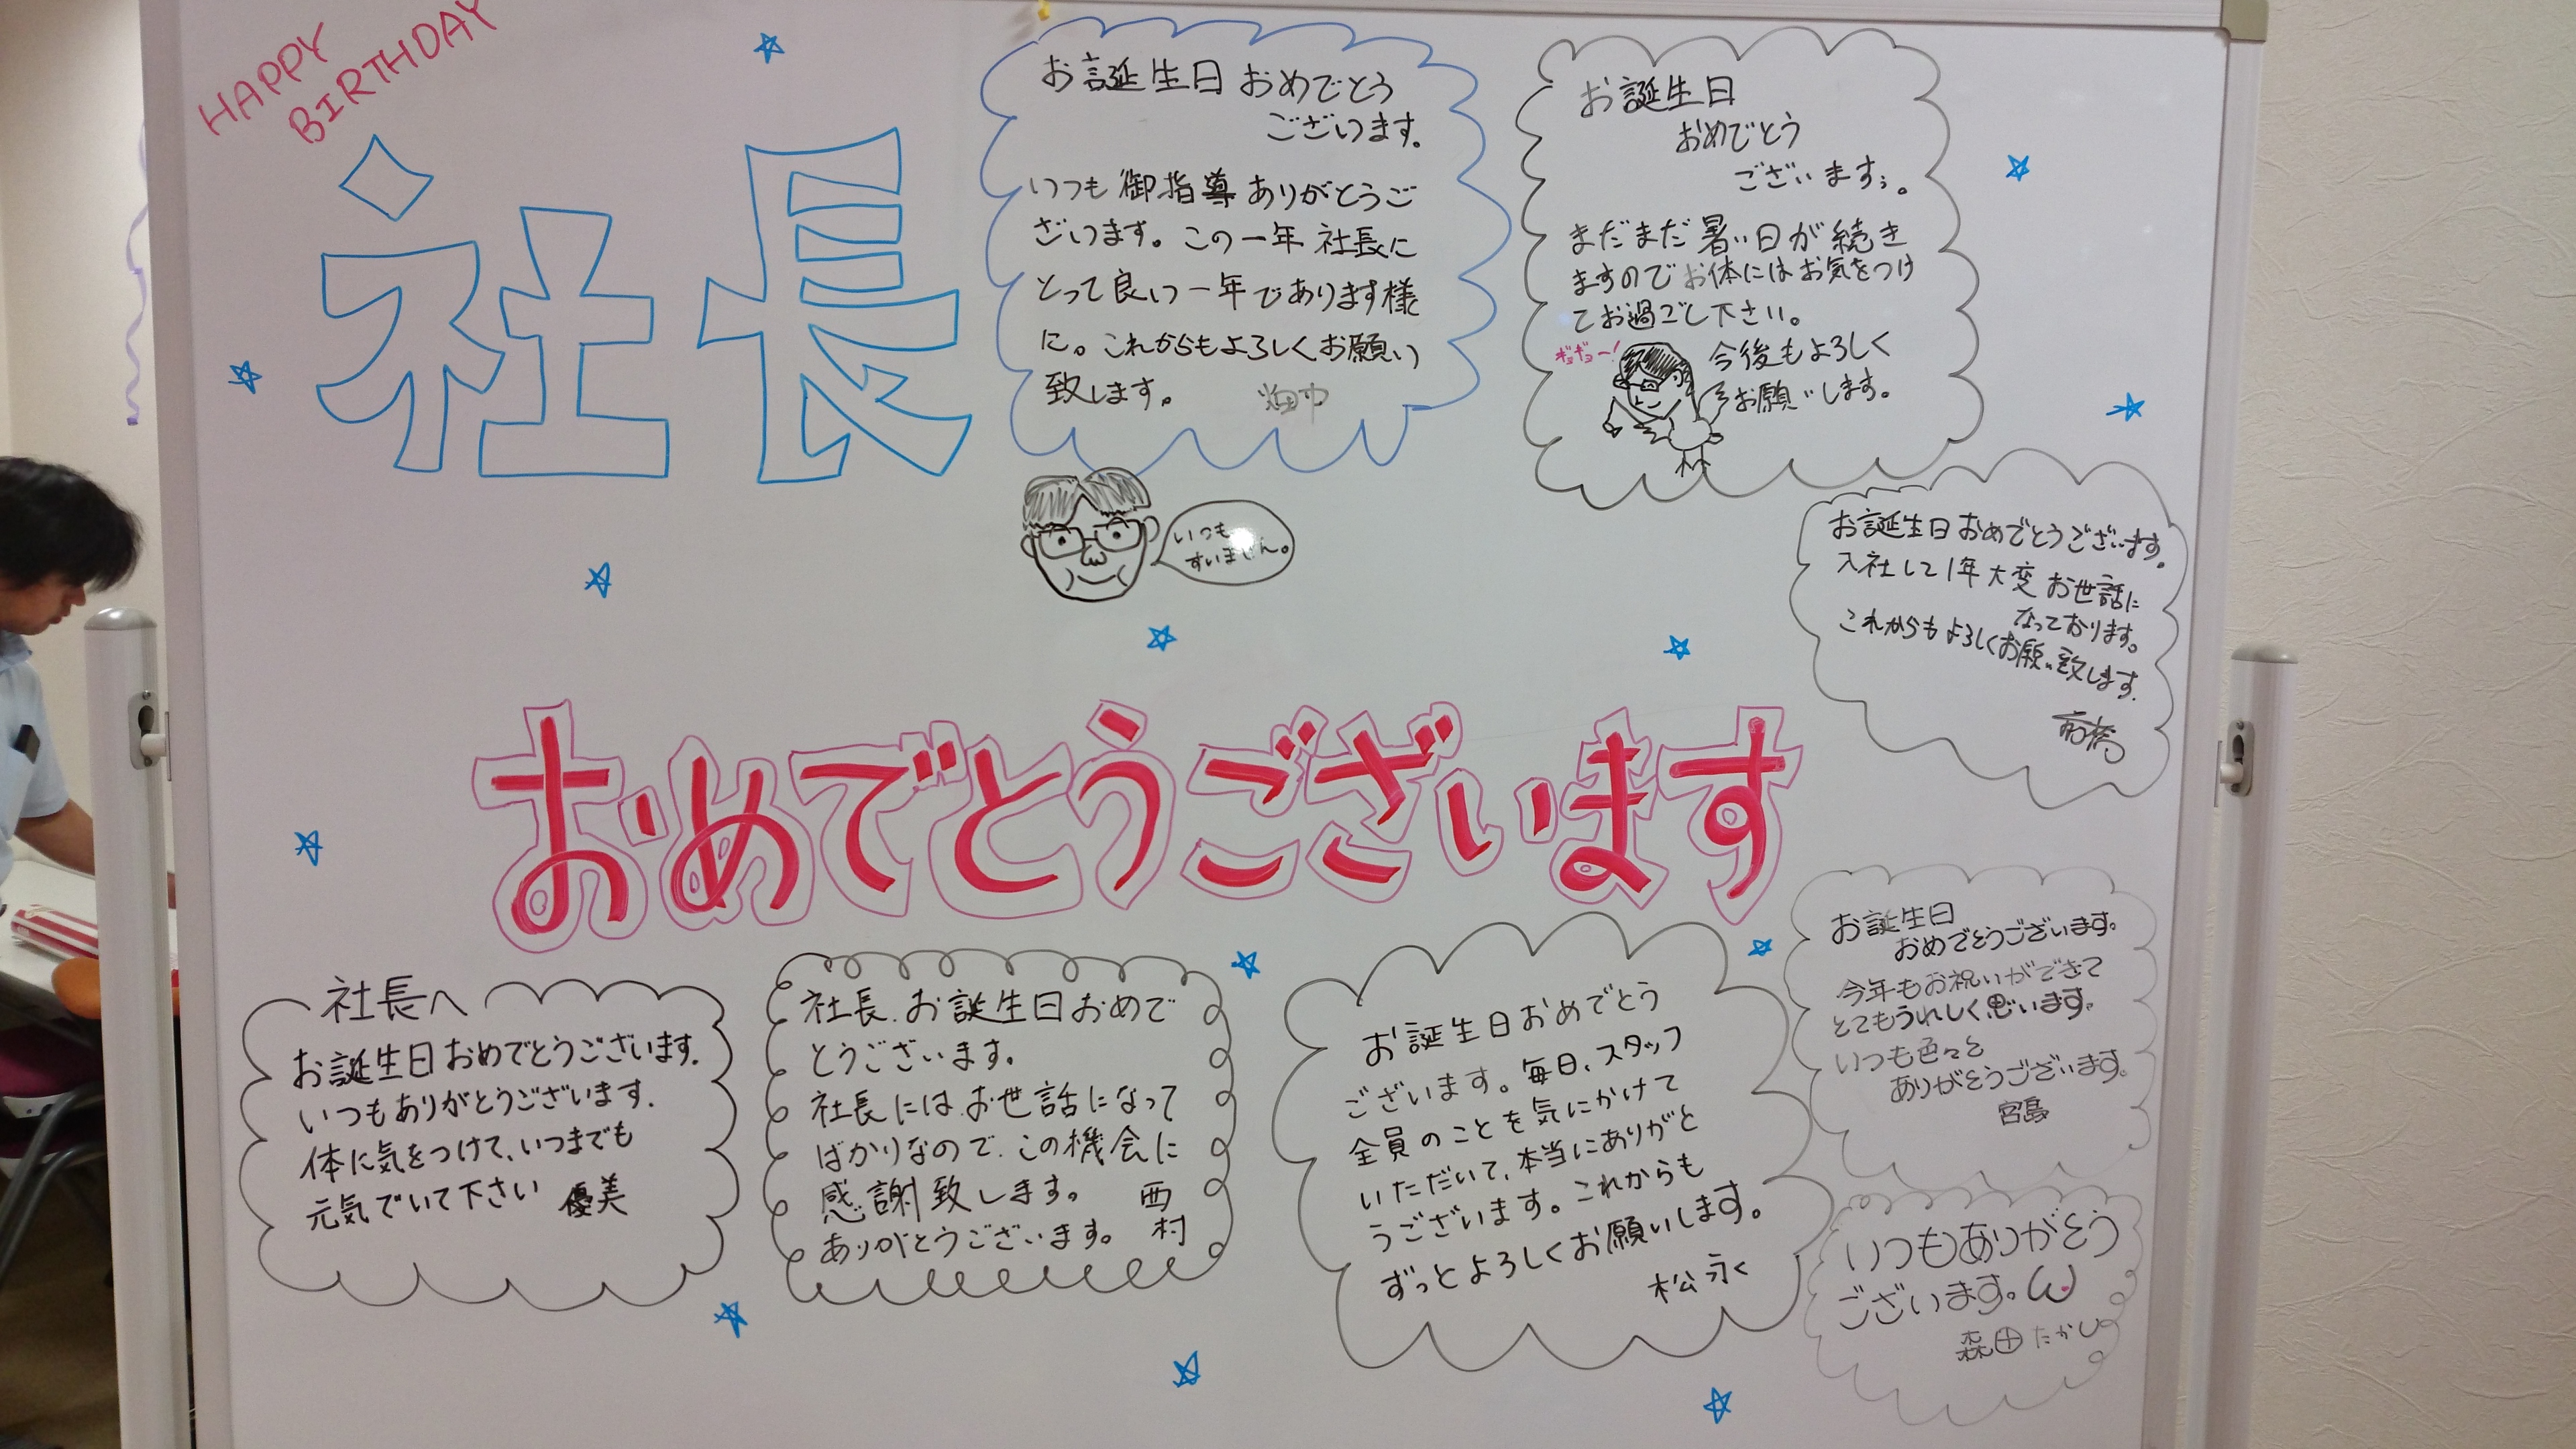 HAPPY
BIRTHDAY
社長
お誕生日 おめでとう
ございます。
いつも御指導ありがとうご
ざいます。この一年 社長に
とって良い一年であります様
に。これからもよろしくお願い
致します。
畑中
お誕生日
おめでとう
ございます。
まだまだ暑い日が続き
ますのでお体にはお気をつけ
てお過ごし下さい。
ギョギョー!
今後もよろしく
お願いします。
いつも
すいません。
お誕生日おめでとうございます。
入社して1年大変お世話に
なっております。
これからもよろしくお願い致します.
前橋
おめでとうございます
社長へ
お誕生日おめでとうございます.
いつもありがとうございます.
体に気をつけて、いつまでも
元気でいて下さい 優美
社長.お誕生日おめで
とうございます。
社長には.お世話になって
ばかりなので.この機会に
感謝致します。
ありがとうございます。
西村
お誕生日おめでとう
ございます。毎日、スタッフ
全員のことを気にかけて
いただいて、本当にありがと
うございます。これからも
ずっとよろしくお願いします。
松永
お誕生日
おめでとうございます。
今年もお祝いができて
とてもうれしく思います。
いつも色々と
ありがとうございます。
宮島
いつもありがとう
ございます。
森田たかし